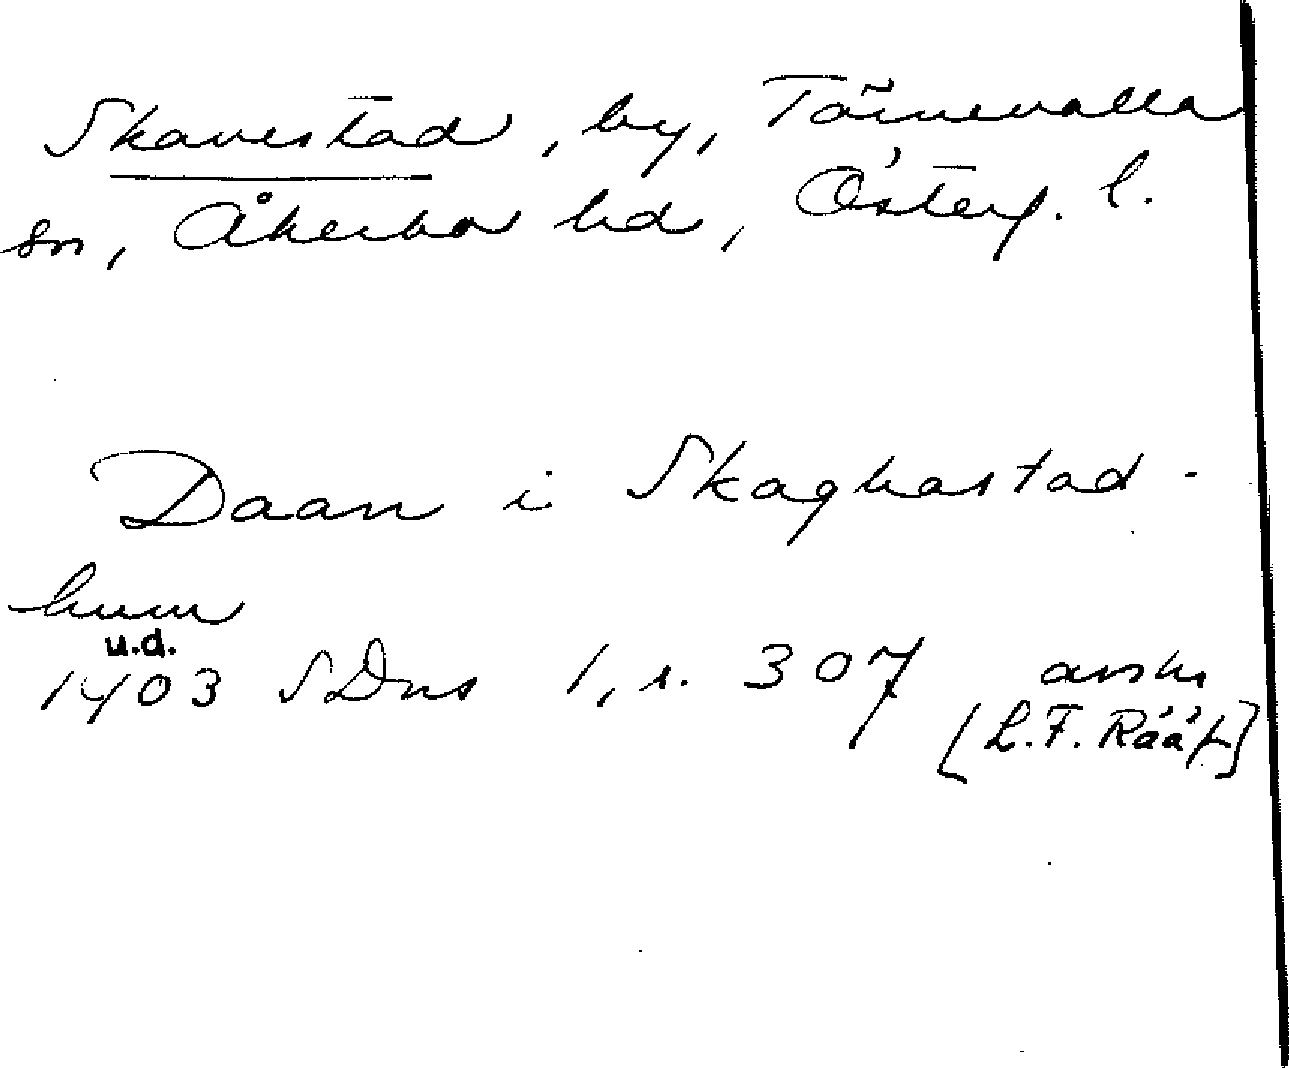 Skavestad, by, Törnevalla
sn, Åkerbo hd, Österg. l.
Daan i Skaghastad-
hum
u.d.
1403 SDns 1, s. 307 avskr
[L.F. Rääf]